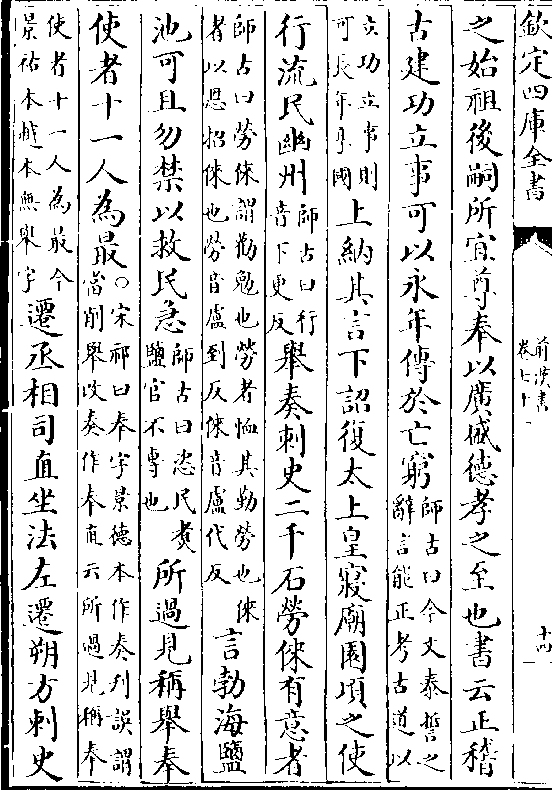 欽定四庫全書
前漢書
卷七十一
十四
之始祖後嗣所宜尊奉以廣盛德孝之至也書云正稽
古建功立事可以永年傳於亡窮師古曰今文泰誓之
辭言能正考古道以
立功立事則
可長年享國上納其言下詔復太上皇寢廟園頃之使
行流民幽州師古曰行
音下更反舉奏刺史二千石勞倈有意者
師古曰勞倈謂勸勉也勞者恤其勤勞也倈
者以恩招倈也勞音盧到反倈音盧代反言勃海鹽
池可且勿禁以救民急師古曰恣民煑
鹽官不專也所過見稱舉奉
使者十一人為最○宋祁曰奉字景德本作奏判誤謂
當削舉改奏作奉直云所過見稱奉
使者十一人為最今
景祐本越本無舉字遷丞相司直坐法左遷朔方刺史